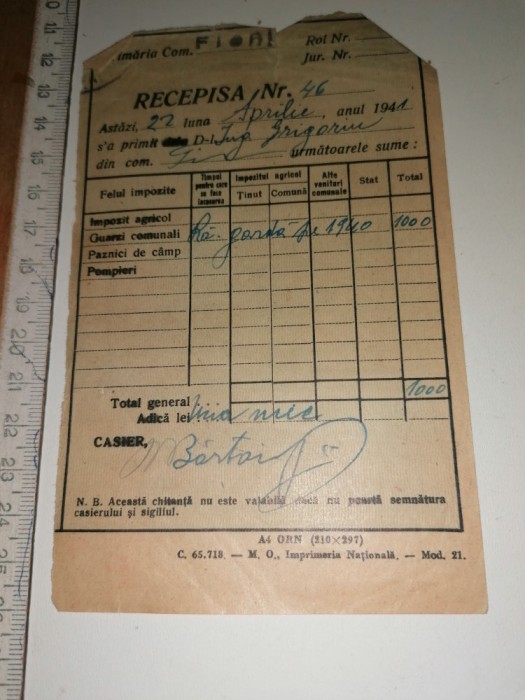 măria Com. FIOBI
Rol Nr.
Jur. Nr.
RECEPISA Nr. 46
Astăzi, 22 luna Aprilie, anul 1941
s'a primit dela D-l Grigoriu
din com. următoarele sume :
Felul impozite
Timpul pentru care se face încasarea
Impozitul agricol
Ținut
Comună
Alte venituri comunale
Stat
Total
Impozit agricol
Guarzi comunali Ră. gardă pe 1940 1000
Paznici de câmp
Pompieri
Total general 1000
Adică lei Una mie
CASIER,
N. B. Această chitanță nu este valabilă dacă nu poartă semnătura
casierului și sigiliul.
A4 ORN (210×297)
C. 65.718. — M. O., Imprimeria Națională. — Mod. 21.
10 12 13 14 15 16 17 18 19 20 21 22 23 24